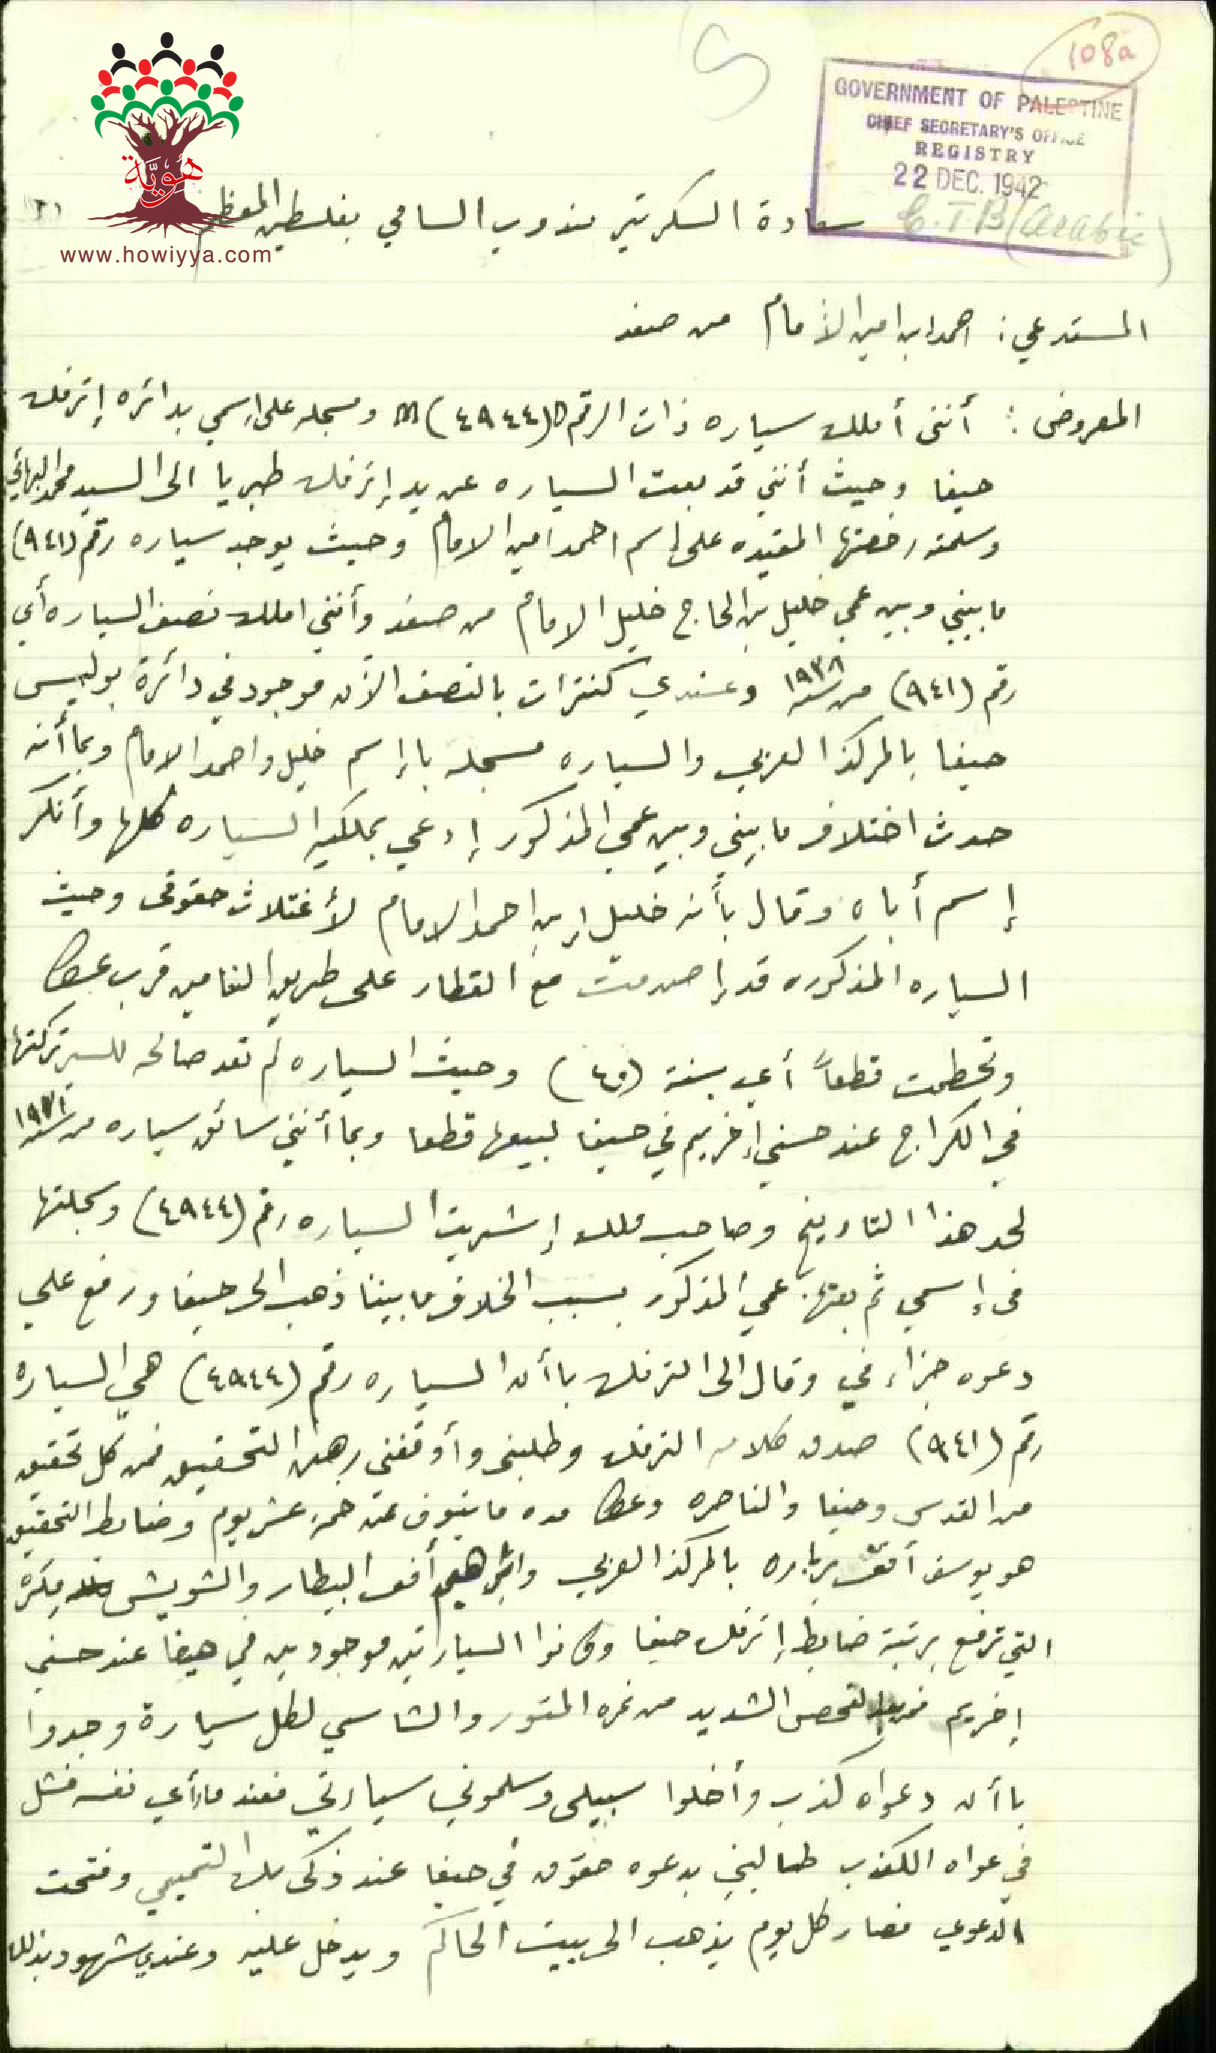 108a
GOVERNMENT OF PALESTINE
CHIEF SECRETARY'S OFFICE
REGISTRY
22 DEC. 1942
E.T.B (Arabic)
هَوِيَّة
www.howiyya.com
سعادة السكرتير مندوب السامي بفلسطين المعظم
المستدعي : احمد ابن امين الأمام من صفد
المعروض : أنني أملك سياره ذات الرقم (٤٩٤٤) m ومسجله على إسمي بدائره إترفك
حيفا وحيث أنني قد بعت السياره عن يد إترفك طبريا الى السيد محمد البهائي
وسلمته رخصتها المقيده على إسم احمد امين الامام وحيث يوجد سياره رقم (٩٤١)
ما بيني وبين عمي خليل بن الحاج خليل الامام من صفد وأنني املك نصف السياره أي
رقم (٩٤١) من سنة ١٩٣٨ وعندي كنترات بالنصف الآن موجود في دائرة بوليس
حيفا بالمركز العربي والسياره مسجله باإسم خليل واحمد الامام وبما أنه
حدث اختلاف ما بيني وبين عمي المذكور إدعي بملكية السياره كلها وأنكر
إسم أباه وقال بأنه خليل ابن احمد الامام لأغتلاث حقوقى وحيث
السياره المذكوره قد إصدمت مع القطار على طريق النعامين قرب عكا
وتحطمت قطعاً أي بسنة (٤٠) وحيث السياره لم تعد صالحه للسير تركتها
في الكراج عند حسني إخريم في حيفا لبيعها قطعا وبما أنني سائق سياره من سنة ١٩٢١
لحد هذا التاريخ وصاحب ملك إشتريت السياره رقم (٤٩٤٤) وسجلتها
في إسمي ثم بعتها. عمي المذكور بسبب الخلاف ما بيننا ذهب الى حيفا ورفع علي
دعوه جزاء في وقال الى الترفك باأن السياره رقم (٤٩٤٤) هي السياره
رقم (٩٤١) صدق كلامه الترفك وطلبني وأوقفني رهن التحقيق فمن كل تحقيق
من القدس وحيفا والناصره وعكا مده ما ينوف عن خمسة عشر يوم وضابط التحقيق
هو يوسف أفندي بالمركز العربي وابراهيم أفندي البيطار والشويش
التي ترفع برتبة ضابط إترفك حيفا وكانوا السيارتين موجودين في حيفا عند حسني
إخريم الفحص الشديد من نمره المتور والشاسي لكل سيارة وجدوا
باأن دعواه كذب وأخلوا سبيلى وسلموني سيارتي فعند ما رأى نفسه فشل
في عواه الكذب طالبني بدعوه حقوق في حيفا عند زكي بك التميمي وفتحت
الدعوي فصار كل يوم يذهب الى بيت الحاكم ويدخل عليه وعندي شهود بذلك